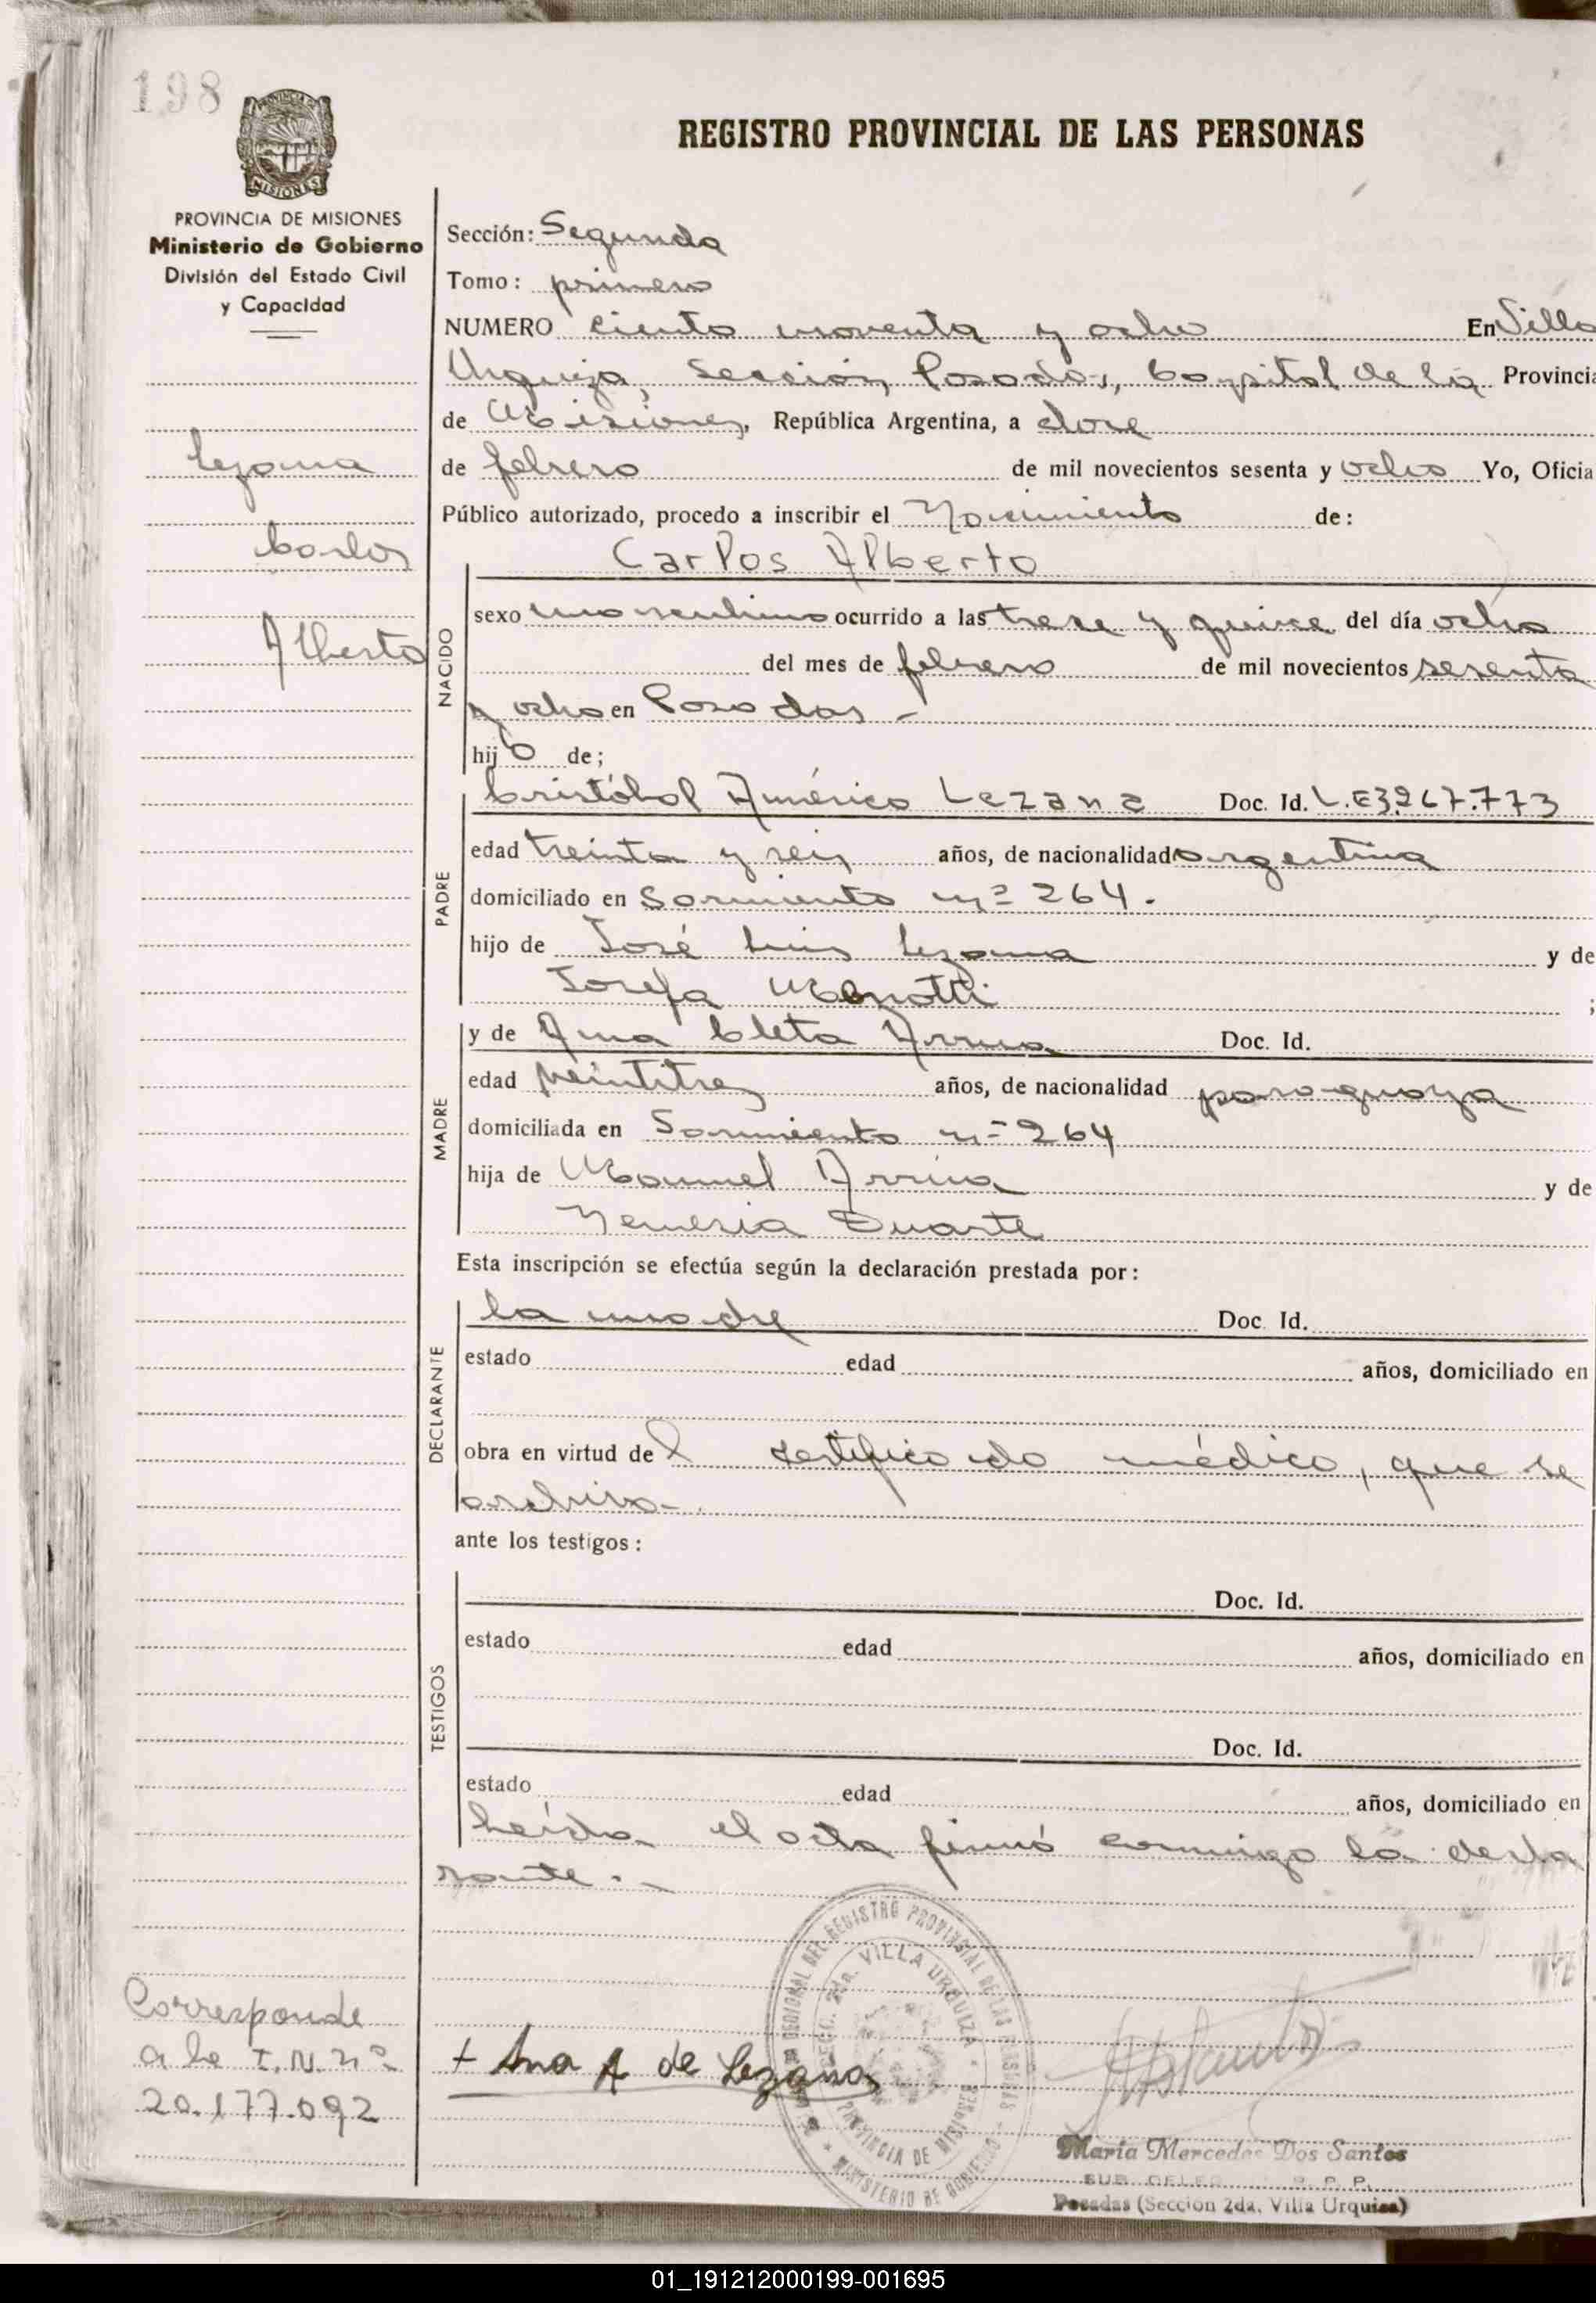 198
PROVINCIA DE MISIONES
Ministerio de Gobierno
División del Estado Civil
y Capacidad
REGISTRO PROVINCIAL DE LAS PERSONAS
Sección: Segunda
Tomo: primero
NUMERO ciento noventa y ocho En Villa
Urquiza, Sección Posadas, Capital de la Provincia
de Misiones, República Argentina, a doce
de febrero de mil novecientos sesenta y ocho Yo, Oficia
Público autorizado, procedo a inscribir el Nacimiento de:
Lezana
Carlos
Alberto
NACIDO
Carlos Alberto
sexo masculino ocurrido a las trece y quince del día ocho
del mes de febrero de mil novecientos sesenta
y ocho en Posadas -
hijo de;
PADRE
Cristóbal Américo Lezana Doc. Id. L.E 3.267.773
edad treinta y seis años, de nacionalidad argentina
domiciliado en Sarmiento nº 264.
hijo de José Luis Lezana y de
Josefa Menotti ;
MADRE
y de Ana Cleta Arrua Doc. Id.
edad veintitres años, de nacionalidad paraguaya
domiciliada en Sarmiento nº 264
hija de Manuel Arrúa y de
Nemesia Duarte
Esta inscripción se efectúa según la declaración prestada por:
DECLARANTE
la madre Doc. Id.
estado edad años, domiciliado en
obra en virtud del certificado médico, que se
archiva-.
ante los testigos:
TESTIGOS
Doc. Id.
estado edad años, domiciliado en
Doc. Id.
estado edad años, domiciliado en
Leída el acta firmó conmigo la decla
rante.-
Corresponde
a la I.N. nº
20.177.092
+ Ana A de Lezana
REGIONAL DEL REGISTRO PROVINCIAL DE LAS PERSONAS
SECC. 2da. VILLA URQUIZA
PROVINCIA DE MISIONES
MINISTERIO DE GOBIERNO
María Mercedes Dos Santos
SUB DELEG P. P.
Posadas (Sección 2da. Villa Urquiza)
01_191212000199-001695